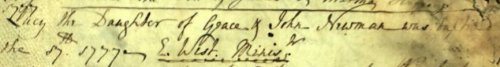 Lucy the Daughter of Grace & John Newman was
the 17th. 1777 E. West. Minisr.